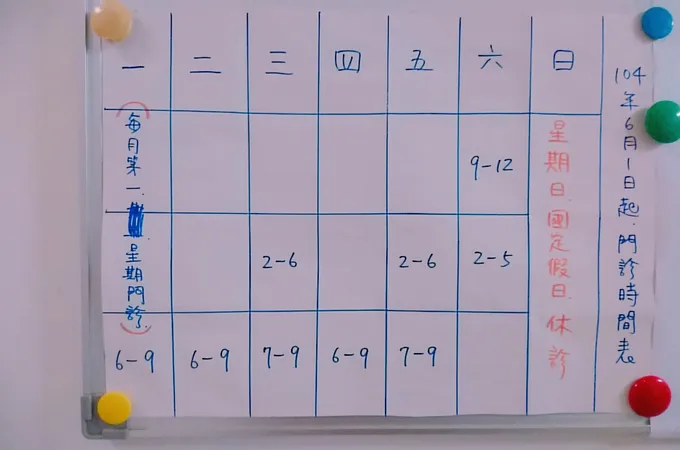 一 二 三 四 五 六 日
9-12
2-6 2-6 2-5
6-9 6-9 7-9 6-9 7-9
(每月第一星期門診)
星期日.國定假日.休診
104年6月1日起.門診時間表